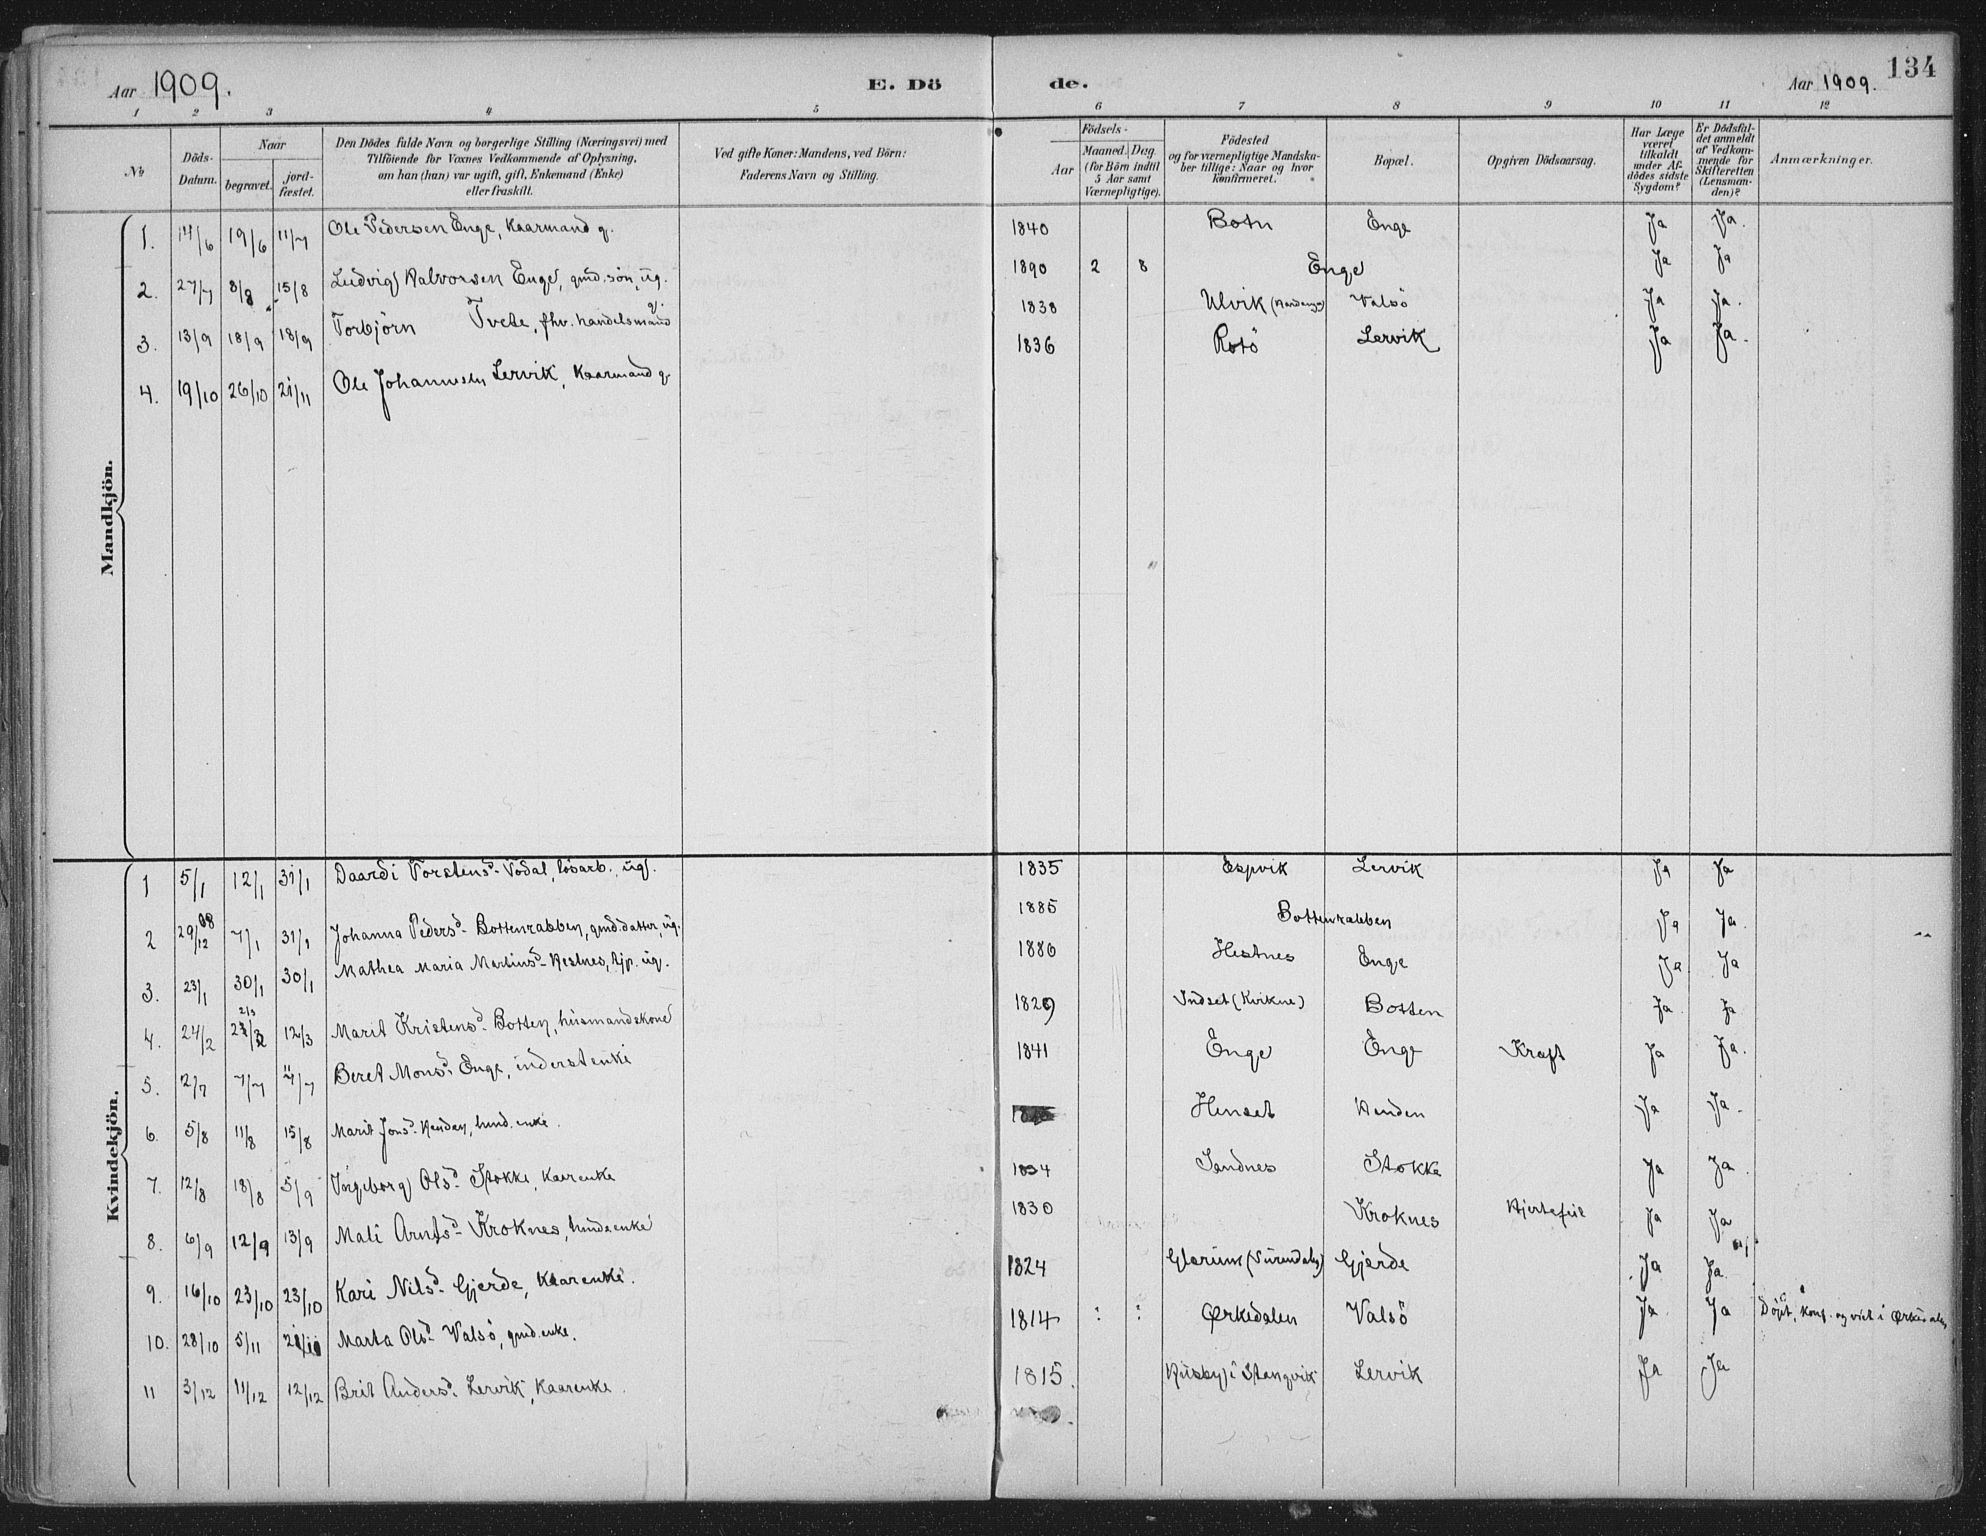 134
Aar 1909.
E. Dö
de.
Aar 1909.
1 2 3 4 5 6 7 8 9 10 11 12
№
Döds-
Datum.
Naar
begravet.
jord-
fæstet.
Den Dödes fulde Navn og borgerlige Stilling (Næringsvei) med
Tilföiende for Voxnes Vedkommende af Oplysning,
om han (hun) var ugift, gift, Enkemand (Enke)
eller fraskilt.
Ved gifte Koner: Mandens, ved Börn:
Faderens Navn og Stilling.
Födsels-
Aar
Maaned. Dag.
(for Börn indtil
5 Aar samt
Værnepligtige).
Födested
og for værnepligtige Mandska-
ber tillige: Naar og hvor
konfirmeret.
Bopæl.
Opgiven Dödsaarsag.
Har Læge
været
tilkaldt
under Af-
dödes sidste
Sygdom?
Er Dödsfal-
det anmeldt
af Vedkom-
mende for
Skifteretten
(Lensman-
den)?
Anmærkninger.
Mandkjön.
1. 14/6 19/6 11/7 Ole Pedersen Enge, Kaarmand g. 1840 Botn Enge Ja Ja.
2. 27/7 8/8 15/8 Ludvig Halvorsen Enge, gmd. sön, ug. 1890 2 8 Enge Ja Ja
3. 13/9 18/9 18/9 Torbjörn Tvete, fhv. handelsmand g. 1838 Ulvik (Hardanger) Valsö Ja Ja.
4. 19/10 26/10 21/11 Ole Johannesen Lervik, Kaarmand g. 1836 Rotö Lervik Ja Ja.
Kvindekjön.
1 5/1 12/1 31/1 Daardi Torstensd. Todal, lösarb., ug. 1835 Espvik Lervik Ja Ja
2 29/12 08 7/1 31/1 Johanna Pedersd. Bottenrabben, gmd.datter, ug. 1885 Bottenrabben Ja Ja.
3. 23/1 30/1 30/1 Mathea Maria Martinsd. Hestnes, tjp. ug. 1880 Hestnes Enge Ja Ja
4. 24/2 2/3 12/3 Marit Kristensd. Botten, husmandskone 1829 Indset (Kvikne) Botten Ja. Ja
5. 2/7 7/7 11/7 Beret Monsd. Enge, inderstenke 1841 Enge Enge Kræft Ja Ja.
6. 5/8 11/8 15/8 Marit Jonsd. Henden, husd. enke. Henset Henden Ja Ja.
7. 12/8 18/8 5/9 Ingeborg Olsd. Stokke, Kaarenke 1834 Sandnes Stokke Ja Ja.
8. 6/9 12/9 13/9 Mali Arntsd. Kroknes, husdsenke 1830 Kroknes Hjertefeil Ja Ja
9. 16/10 23/10 23/10 Kari Nilsd. Gjerde, Kaarenke. 1824 Glærum (Surendalen) Gjerde Ja Ja
10. 28/10 5/11 Marta Olsd. Valsö, gmd. enke. 1814 : : Ørkedalen Valsö Ja. Ja Döpt, Konf. og viet i Ørkedalen
11 3/12 11/12 12/12 Brit Andersd. Lervik, Kaarenke. 1815. Husby i Stangvik Lervik Ja Ja